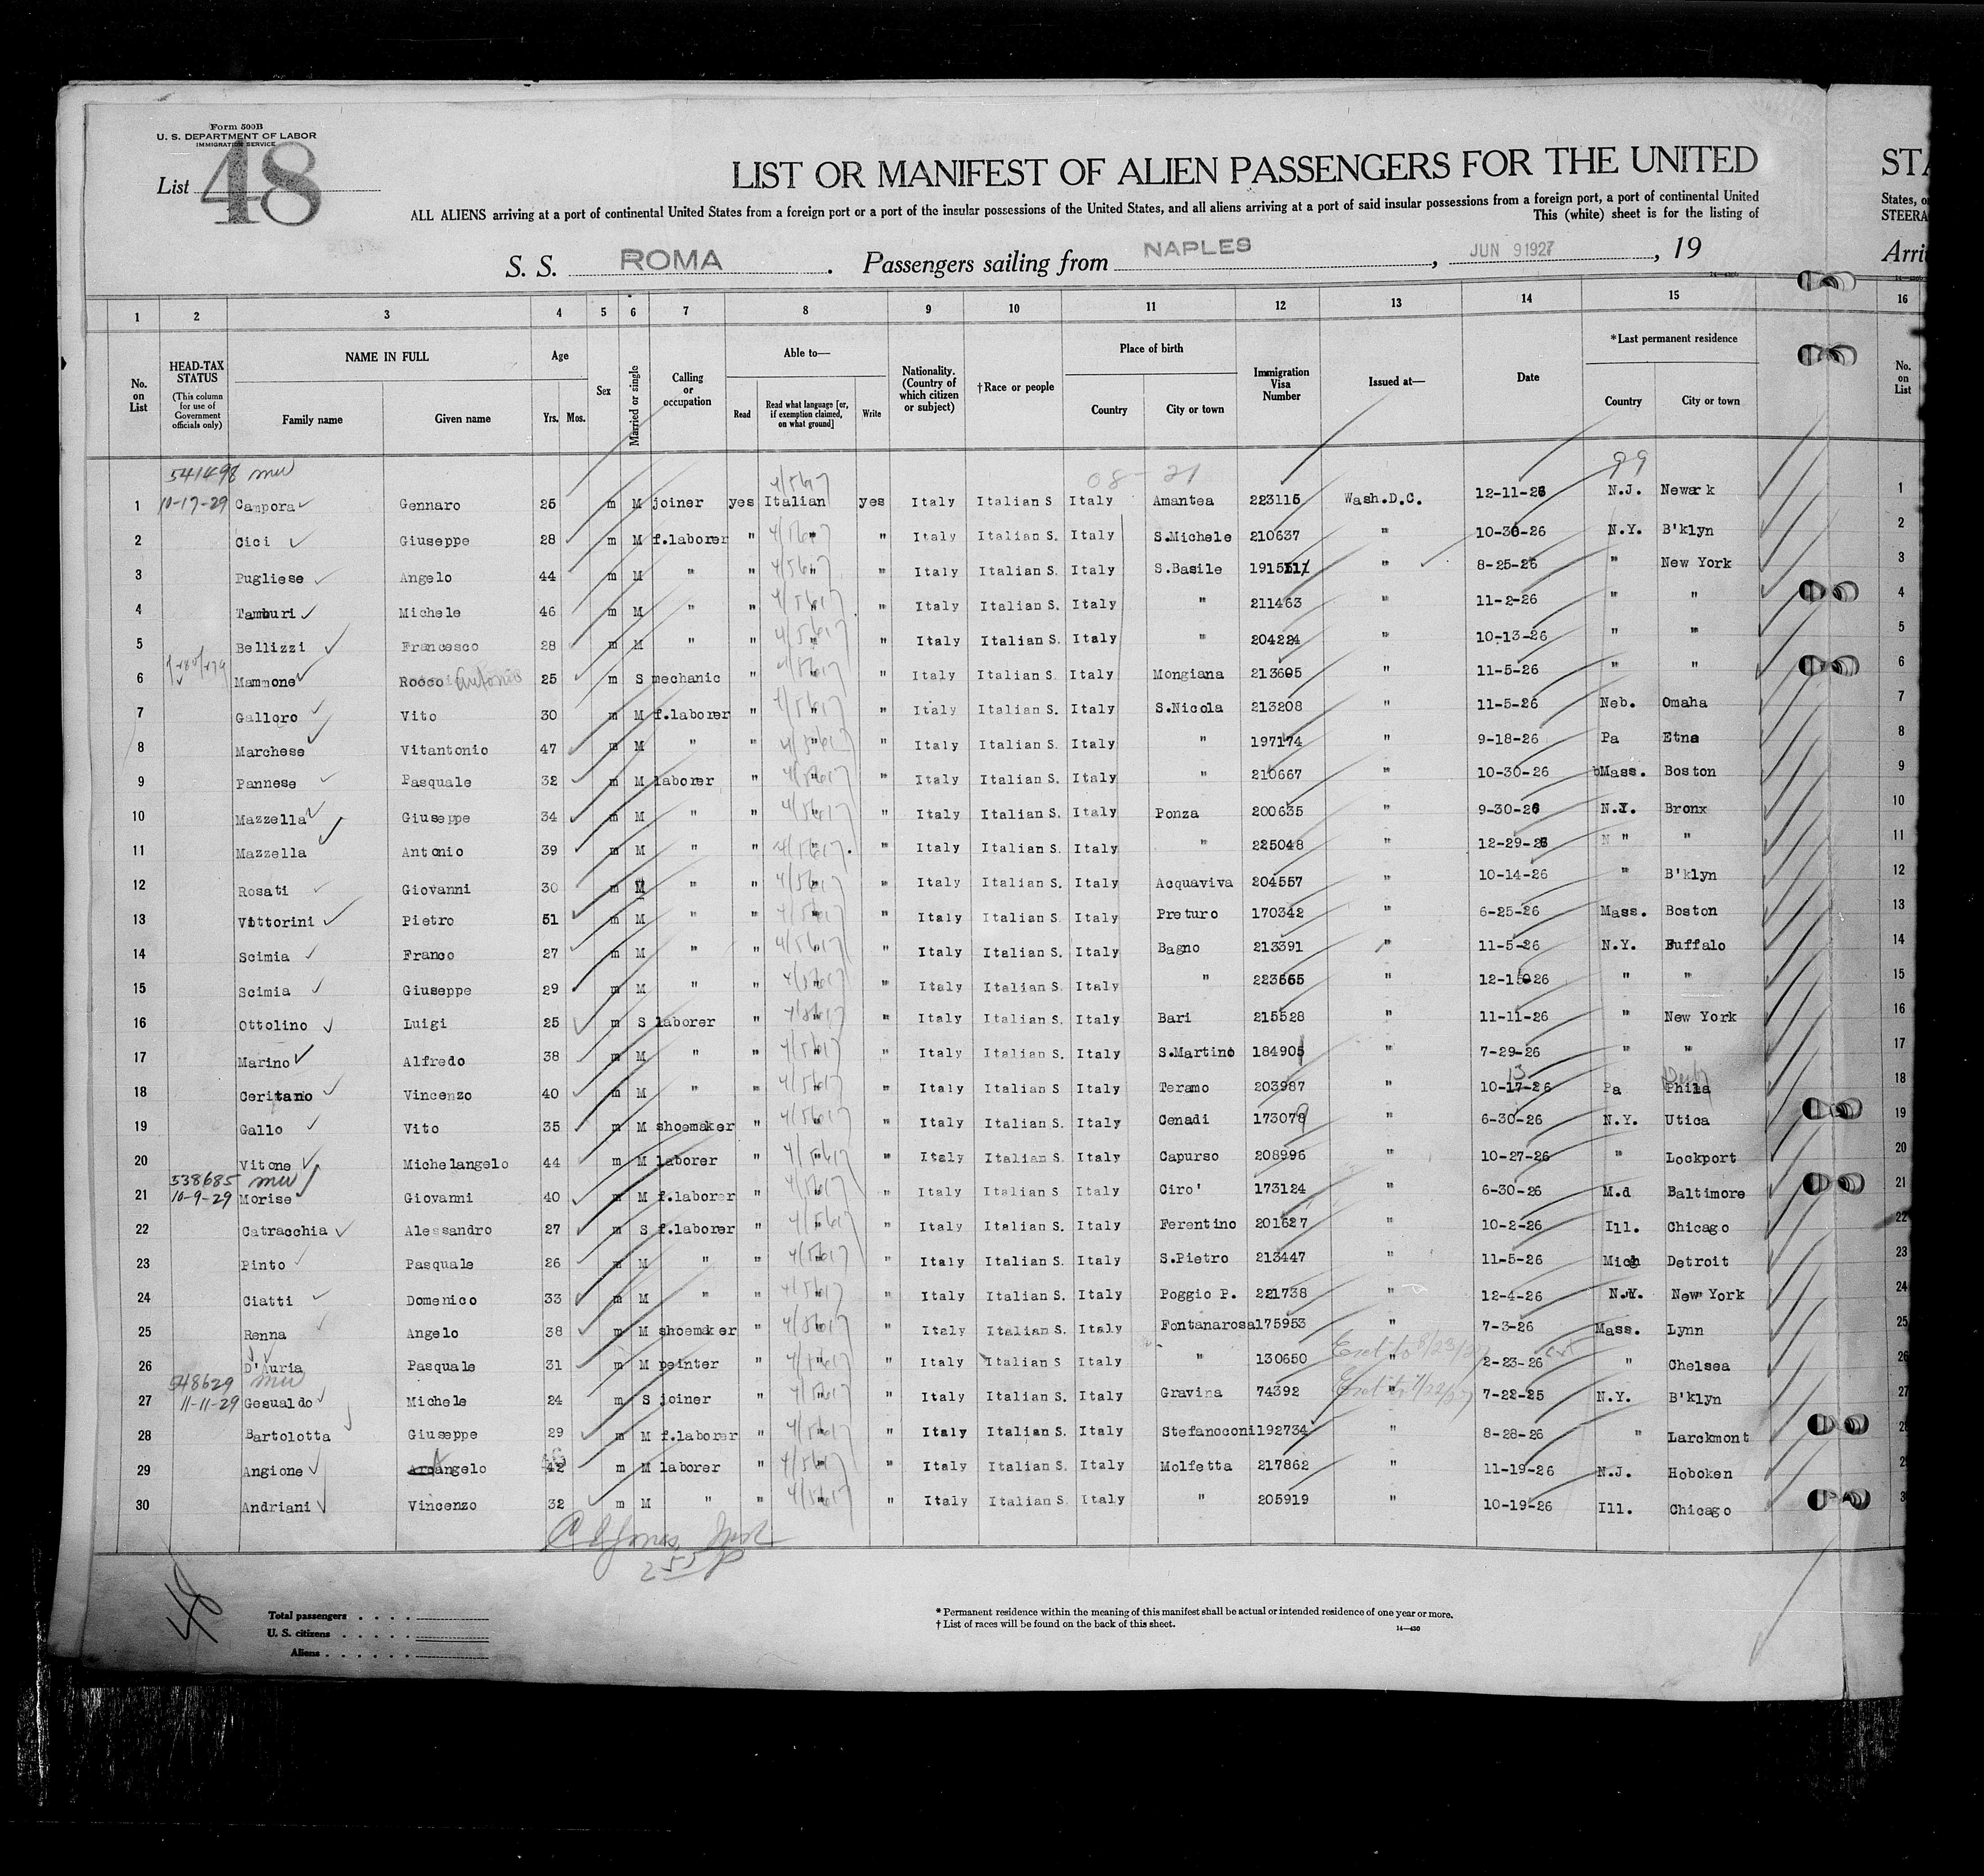 Form 500B
U. S. DEPARTMENT OF LABOR
IMMIGRATION SERVICE
List 48
LIST OR MANIFEST OF ALIEN PASSENGERS FOR THE UNITED
STA
ALL ALIENS arriving at a port of continental United States from a foreign port or a port of the insular possessions of the United States, and all aliens arriving at a port of said insular possessions from a foreign port, a port of continental United
States, o
This (white) sheet is for the listing of
STEERA
S. S. ROMA . Passengers sailing from NAPLES , JUN 9 1927 , 19
Arri
1 2 3 4 5 6 7 8 9 10 11 12 13 14 15 16
No. on List
HEAD-TAX STATUS (This column for use of Government officials only)
NAME IN FULL
Family name Given name
Age
Yrs. Mos.
Sex
Married or single
Calling or occupation
Able to—
Read Read what language [or, if exemption claimed, on what ground] Write
Nationality. (Country of which citizen or subject)
†Race or people
Place of birth
Country City or town
Immigration Visa Number
Issued at—
Date
*Last permanent residence
Country City or town
No. on List
541498
08-21 99
1 10-17-29 Campora Gennaro 25 m M joiner yes Italian yes Italy Italian S Italy Amantea 223115 Wash.D.C. 12-11-26 N.J. Newark 1
2 Cici Giuseppe 28 m M f.laborer " " " Italy Italian S. Italy S.Michele 210637 " 10-30-26 N.Y. B'klyn 2
3 Pugliese Angelo 44 m M " " " " Italy Italian S. Italy S.Basile " 8-25-26 " New York 3
4 Tamburi Michele 46 m M " " " " Italy Italian S. Italy " 211463 " 11-2-26 " " 4
5 Bellizzi Francesco 28 m M " " " " Italy Italian S. Italy " 204224 " 10-13-26 " " 5
6 Mammone Rocco Antonio 25 m S mechanic " " " Italy Italian S. Italy Mongiana 213605 " 11-5-26 " " 6
7 Galloro Vito 30 m M f.laborer " " " Italy Italian S. Italy S.Nicola 213208 " 11-5-26 Neb. Omaha 7
8 Marchese Vitantonio 47 m M " " " " Italy Italian S. Italy " 197174 " 9-18-26 Pa Etna 8
9 Pannese Pasquale 32 m M laborer " " " Italy Italian S. Italy " 210667 " 10-30-26 Mass. Boston 9
10 Mazzella Giuseppe 34 m M " " " " Italy Italian S. Italy Ponza 200635 " 9-30-26 N.Y. Bronx 10
11 Mazzella Antonio 39 m M " " " " Italy Italian S Italy " 225048 " 12-29-26 " " 11
12 Rosati Giovanni 30 m M " " " " Italy Italian S. Italy Acquaviva 204557 " 10-14-26 " B'klyn 12
13 Vittorini Pietro 51 m M " " " " Italy Italian S. Italy Preturo 170342 " 6-25-26 Mass. Boston 13
14 Scimia Franco 27 m M " " " " Italy Italian S. Italy Bagno 213391 " 11-5-26 N.Y. Buffalo 14
15 Scimia Giuseppe 29 m M " " " " Italy Italian S. Italy " 223565 " " " 15
16 Ottolino Luigi 25 m S laborer " " " Italy Italian S Italy Bari 215528 " 11-11-26 " New York 16
17 Marino Alfredo 38 m M " " " " Italy Italian S. Italy S.Martino 184905 " 7-29-26 " " 17
13
18 Ceritano Vincenzo 40 m M " " " " Italy Italian S. Italy Teramo 203987 " 10-17-26 Pa Phila 18
19 Gallo Vito 35 m M shoemaker " " " Italy Italian S. Italy Cenadi 173079 " 6-30-26 N.Y. Utica 19
20 Vitone Michelangelo 44 m M laborer " " " Italy Italian S. Italy Capurso 208996 " 10-27-26 " Lockport 20
538685
21 10-9-29 Morise Giovanni 40 m M f.laborer " " " Italy Italian S Italy Ciro' 173124 " 6-30-26 M.d Baltimore 21
22 Catracchia Alessandro 27 m S f.laborer " " " Italy Italian S. Italy Ferentino 201627 " 10-2-26 Ill. Chicago 22
23 Pinto Pasquale 26 m M " " " " Italy Italian S. Italy S.Pietro 213447 " 11-5-26 Mich Detroit 23
24 Ciatti Domenico 33 m M " " " " Italy Italian S. Italy Poggio P. 221738 " 12-4-26 N.Y. New York 24
25 Renna Angelo 38 m M shoemaker " " " Italy Italian S. Italy Fontanarosa 175953 " 7-3-26 Mass. Lynn 25
26 D'Auria Pasquale 31 m M peinter " " " Italy Italian S Italy " 130650 " 2-23-26 " Chelsea 26
548629
27 11-11-29 Gesualdo Michele 24 m S joiner " " " Italy Italian S. Italy Gravina 74392 " 7-22-25 N.Y. B'klyn 27
28 Bartolotta Giuseppe 29 m M f.laborer " " " Italy Italian S. Italy Stefanoconi 192734 " 8-28-26 " Larckmont 28
29 Angione Arcangelo 42 m M laborer " " " Italy Italian S. Italy Molfetta 217862 " 11-19-26 N.J. Hoboken 2
30 Andriani Vincenzo 32 m M " " " " Italy Italian S Italy " 205919 " 10-19-26 Ill. Chicago 3
48
Total passengers
U. S. citizens
Aliens
* Permanent residence within the meaning of this manifest shall be actual or intended residence of one year or more.
† List of races will be found on the back of this sheet.
14—430